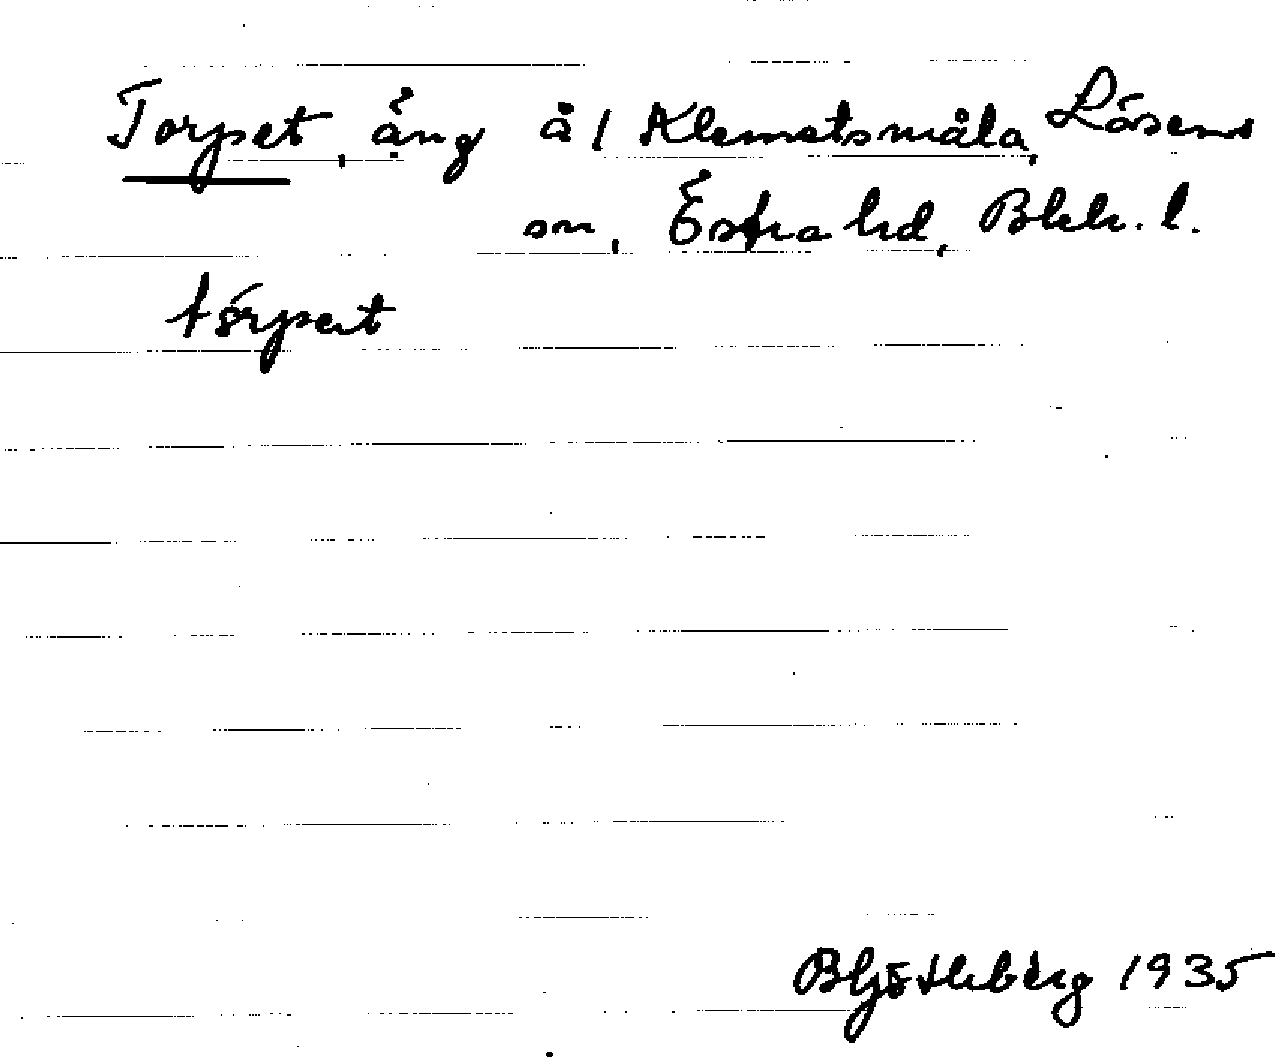 Torpet, äng å / Klemetsmåla, Lösens
sn, Östra hd, Blek. l.
tórpet
1935